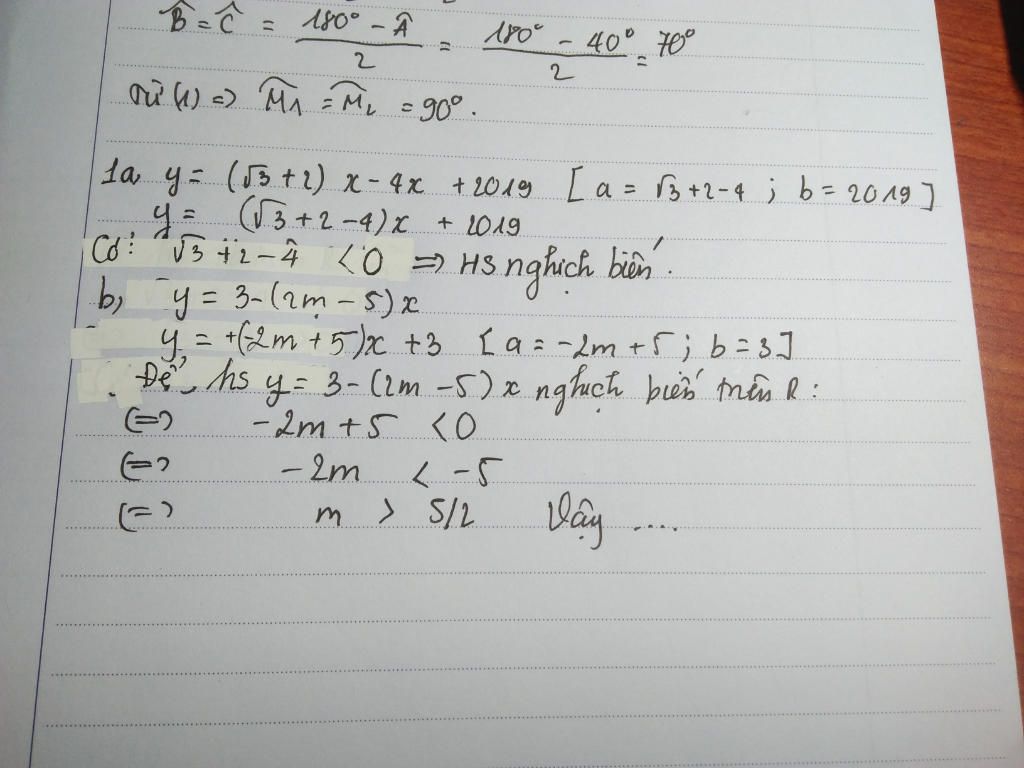 B̂ = Ĉ = (180° - Â)/2 = (180° - 40°)/2 = 70°
Từ (1) => M̂1 = M̂2 = 90°.
1a y = (√3 + 2) x - 4x + 2019 [a = √3 + 2 - 4 ; b = 2019]
y = (√3 + 2 - 4)x + 2019
Có: √3 + 2 - 4 < 0 => HS nghịch biến.
b, y = 3 - (2m - 5)x
y = +(-2m + 5)x + 3 [a = -2m + 5 ; b = 3]
Để hs y = 3 - (2m - 5)x nghịch biến trên R :
(=) -2m + 5 < 0
(=) -2m < -5
(=) m > 5/2 Vậy ....